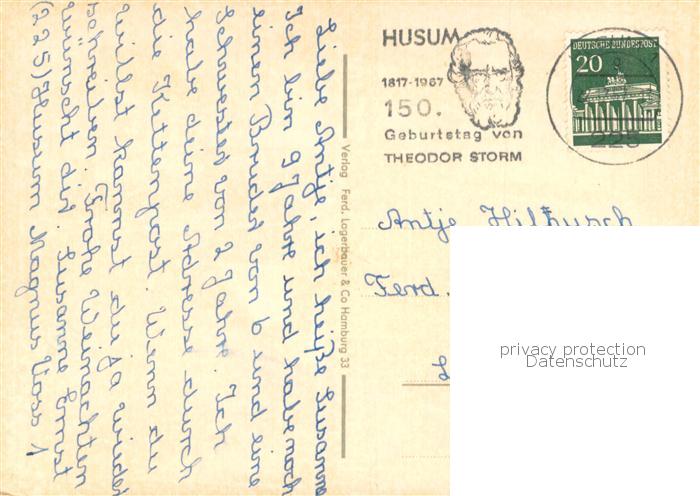 Liebe Antje, ich heiße Susanne
Ich bin 9 Jahre und habe noch
einen Bruder von 6 und eine
Schwester von 2 Jahre. Ich
habe deine Adresse durch
die Kettenpost. Wenn du
willst kannst du ja wieder
schreiben. Frohe Weinachten
wünscht dir. Susanne Ernst
(225) Husum Magnus Voss
Verlag Ferd. Lagerbauer & Co Hamburg 33
HUSUM
1817-1967
150.
Geburtstag von
THEODOR STORM
DEUTSCHE BUNDESPOST
20
225
Antje Hilbusch
Ferd.
privacy protection
Datenschutz